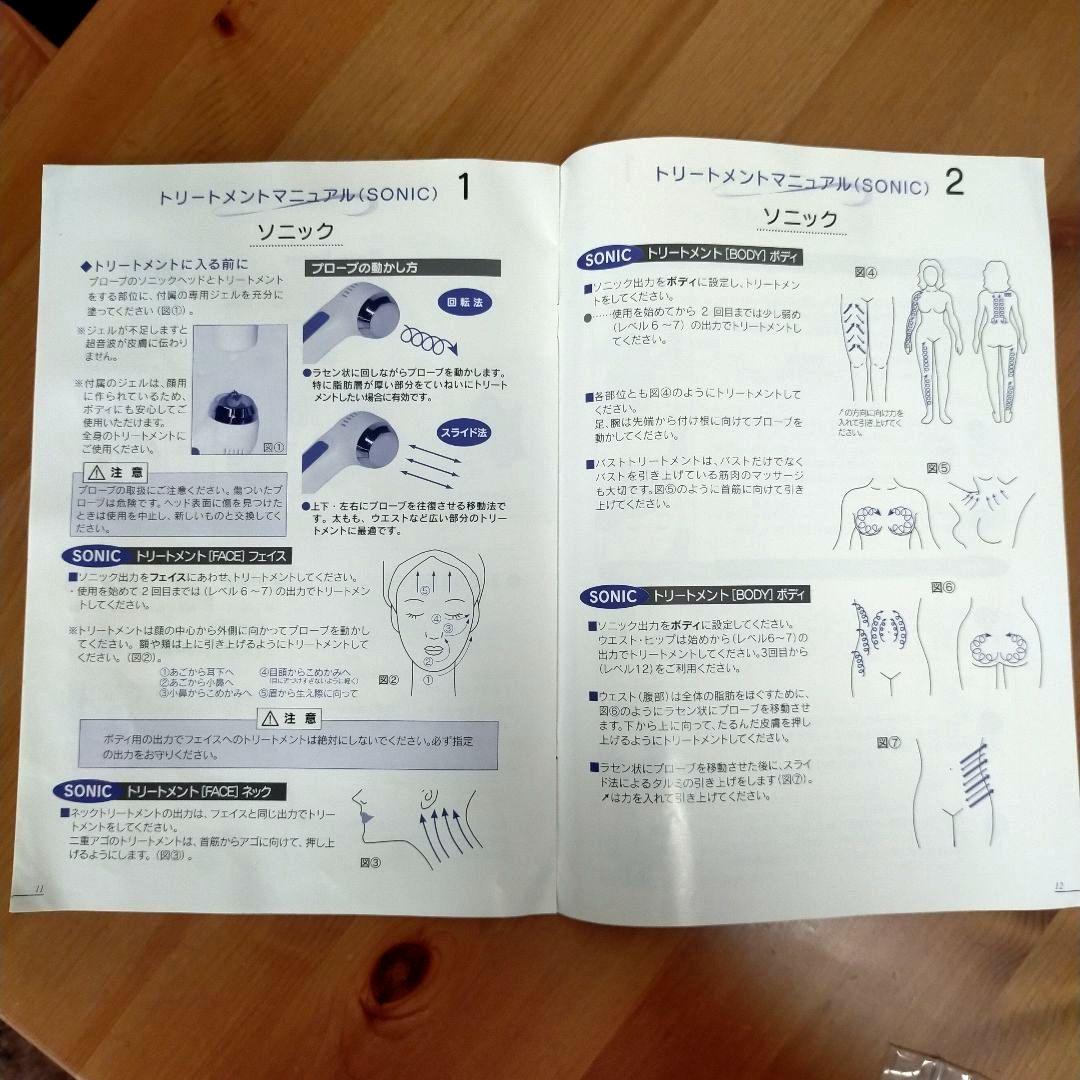 トリートメントマニュアル(SONIC) 1
ソニック
◆トリートメントに入る前に
プローブのソニックヘッドとトリートメント
をする部位に、付属の専用ジェルを充分に
塗ってください(図①)。
※ジェルが不足しますと
超音波が皮膚に伝わり
ません。
※付属のジェルは、顔用
に作られているため、
ボディにも安心してご
使用いただけます。
全身のトリートメントに
ご使用ください。
図①
⚠ 注 意
プローブの取扱にご注意ください。傷ついたプ
ローブは危険です。ヘッド表面に傷を見つけた
ときは使用を中止し、新しいものと交換してく
ださい。
プローブの動かし方
回転法
●ラセン状に回しながらプローブを動かします。
特に脂肪層が厚い部分をていねいにトリート
メントしたい場合に有効です。
スライド法
●上下・左右にプローブを往復させる移動法で
す。太もも、ウエストなど広い部分のトリー
トメントに最適です。
SONIC トリートメント[FACE]フェイス
■ソニック出力をフェイスにあわせ、トリートメントしてください。
・使用を始めて2回目までは(レベル6～7)の出力でトリートメン
トしてください。
※トリートメントは顔の中心から外側に向かってプローブを動かし
てください。額や頬は上に引き上げるようにトリートメントして
ください。(図②)。
①あごから耳下へ ④目頭からこめかみへ
②あごから小鼻へ (目に近づけすぎないように軽く)
③小鼻からこめかみへ ⑤眉から生え際に向って
⑤
④
③
②
①
図②
⚠ 注 意
ボディ用の出力でフェイスへのトリートメントは絶対にしないでください。必ず指定
の出力をお守りください。
SONIC トリートメント[FACE]ネック
■ネックトリートメントの出力は、フェイスと同じ出力でトリー
トメントをしてください。
二重アゴのトリートメントは、首筋からアゴに向けて、押し上
げるようにします。(図③)。
図③
11
トリートメントマニュアル(SONIC) 2
ソニック
SONIC トリートメント[BODY]ボディ
■ソニック出力をボディに設定し、トリートメン
トをしてください。
●……使用を始めてから 2 回目までは少し弱め
(レベル6～7)の出力でトリートメントし
てください。
■各部位とも図④のようにトリートメントして
ください。
足、腕は先端から付け根に向けてプローブを
動かしてください。
■バストトリートメントは、バストだけでなく
バストを引き上げている筋肉のマッサージ
も大切です。図⑤のように首筋に向けて引き
上げてください。
図④
↗の方向に向け力を
入れて引き上げてく
ださい。
図⑤
SONIC トリートメント[BODY]ボディ
■ソニック出力をボディに設定してください。
ウエスト・ヒップは始めから(レベル6～7)の
出力でトリートメントしてください。3回目から
(レベル12)をご利用ください。
■ウェスト(腹部)は全体の脂肪をほぐすために、
図⑥のようにラセン状にプローブを移動させ
ます。下から上に向って、たるんだ皮膚を押し
上げるようにトリートメントしてください。
■ラセン状にプローブを移動させた後に、スライ
ド法によるタルミの引き上げをします(図⑦)。
↗は力を入れて引き上げてください。
図⑥
図⑦
12